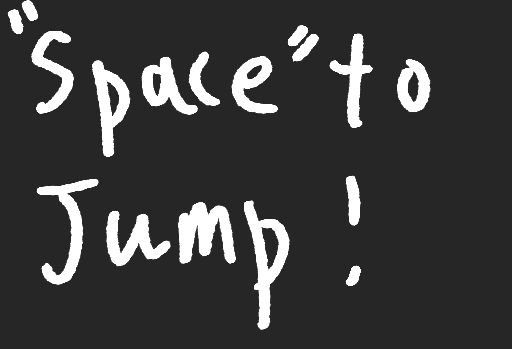 "Space" to
Jump!